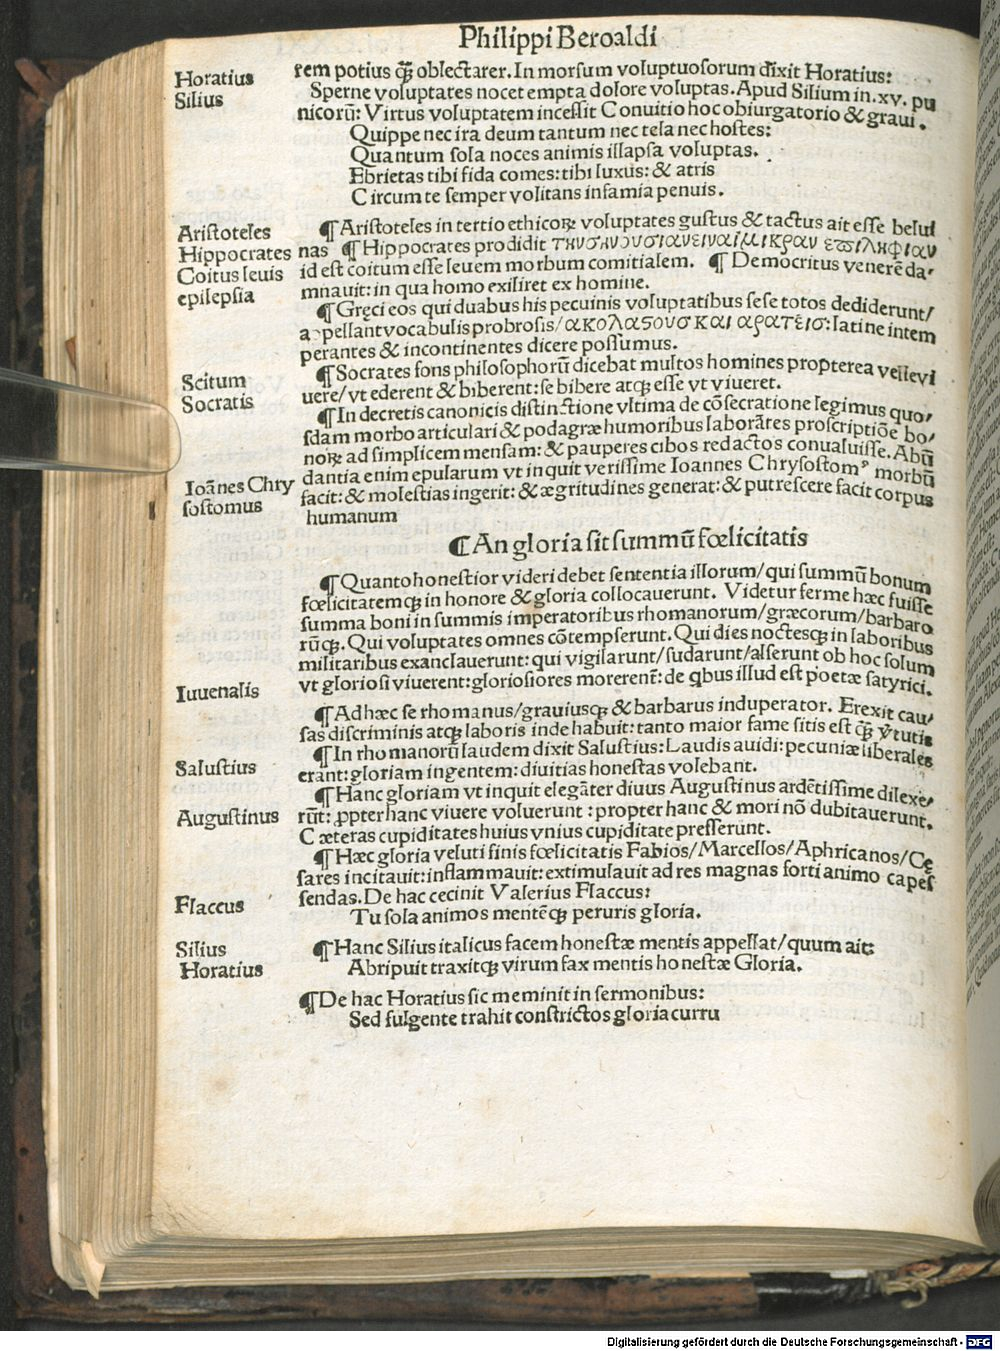 Philippi Beroaldi
Horatius
Silius
rem potius q̃ȝ oblectarer. In morſum voluptuoſorum dixit Horatius:
Sperne voluptates nocet empta dolore voluptas. Apud Silium in .xv. pu
nicorũ: Virtus voluptatem inceſſit Conuitio hoc obiurgatorio & graui.
Quippe nec ira deum tantum nec tela nec hoſtes:
Quantum ſola noces animis illapſa voluptas.
Ebrietas tibi fida comes: tibi luxus: & atris
Circum te ſemper volitans infamia penuis.
Ariſtoteles
Hippocrates
Coitus leuis
epilepſia
¶ Ariſtoteles in tertio ethicoꝝ voluptates guſtus & tactus ait eſſe belui
nas ¶ Hippocrates prodidit
id eſt coitum eſſe leuem morbum comitialem. ¶ Democritus venerẽ da⸗
mnauit: in qua homo exiliret ex homine.
¶ Gręci eos qui duabus his pecuinis voluptatibus ſeſe totos dediderunt/
appellant vocabulis probroſis/ ακολαςουσ και αρατεισ: latine intem
perantes & incontinentes dicere poſſumus.
Scitum
Socratis
¶ Socrates fons philoſophorũ dicebat multos homines propterea vellevi
uere/ vt ederent & biberent: ſe bibere atqȝ eſſe vt viueret.
¶ In decretis canonicis diſtinctione vltima de cõſecratione legimus quo⸗
ſdam morbo articulari & podagræ humoribus laborãtes proſcriptiõe bo⸗
noꝝ ad ſimplicem menſam: & pauperes cibos redactos conualuiſſe. Abũ
dantia enim epularum vt inquit veriſſime Ioannes Chryſoſtomꝰ morbũ
Ioãnes Chry
ſoſtomus
facit: & moleſtias ingerit: & ægritudines generat: & putreſcere facit corpus
humanum
¶ An gloria ſit ſummũ fœlicitatis
¶ Quanto honeſtior videri debet ſententia illorum/ qui ſummũ bonum
fœlicitatemqȝ in honore & gloria collocauerunt. Videtur ferme hæc fuiſſe
ſumma boni in ſummis imperatoribus rhomanorum/ græcorum/ barbaro
rũqȝ. Qui voluptates omnes cõtempſerunt. Qui dies nocteſqȝ in laboribus
militaribus exanclauerunt: qui vigilarunt/ ſudarunt/ alſerunt ob hoc ſolum
vt glorioſi viuerent: glorioſiores morerent̃: de qbus illud eſt poetæ ſatyrici.
Iuuenalis
¶ Ad hæc ſe rhomanus/ grauiuſqȝ & barbarus induperator. Erexit cau⸗
ſas diſcriminis atqȝ laboris inde habuit: tanto maior fame ſitis eſt q̃ȝ ṽtutis
Saluſtius
¶ In rhomanorũ laudem dixit Saluſtius: Laudis auidi: pecuniæ liberales
erant: gloriam ingentem: diuitias honeſtas volebant.
Auguſtinus
¶ Hanc gloriam vt inquit elegãter diuus Auguſtinus ardẽtiſſime dilexe⸗
rũt: ꝓpter hanc viuere voluerunt: propter hanc & mori nõ dubitauerunt.
Cæteras cupiditates huius vnius cupiditate preſſerunt.
¶ Hæc gloria veluti finis fœlicitatis Fabios/ Marcellos/ Aphricanos/ Cę
ſares incitauit: inflammauit: extimulauit ad res magnas forti animo capeſ
ſendas. De hac cecinit Valerius Flaccus:
Flaccus
Tu ſola animos mentẽqȝ peruris gloria.
Silius
Horatius
¶ Hanc Silius italicus facem honeſtæ mentis appellat/ quum ait:
Abripuit traxitqȝ virum fax mentis honeſtæ Gloria.
¶ De hac Horatius ſic meminit in ſermonibus:
Sed fulgente trahit conſtrictos gloria curru
Digitalisierung gefördert durch die Deutsche Forschungsgemeinschaft - DFG